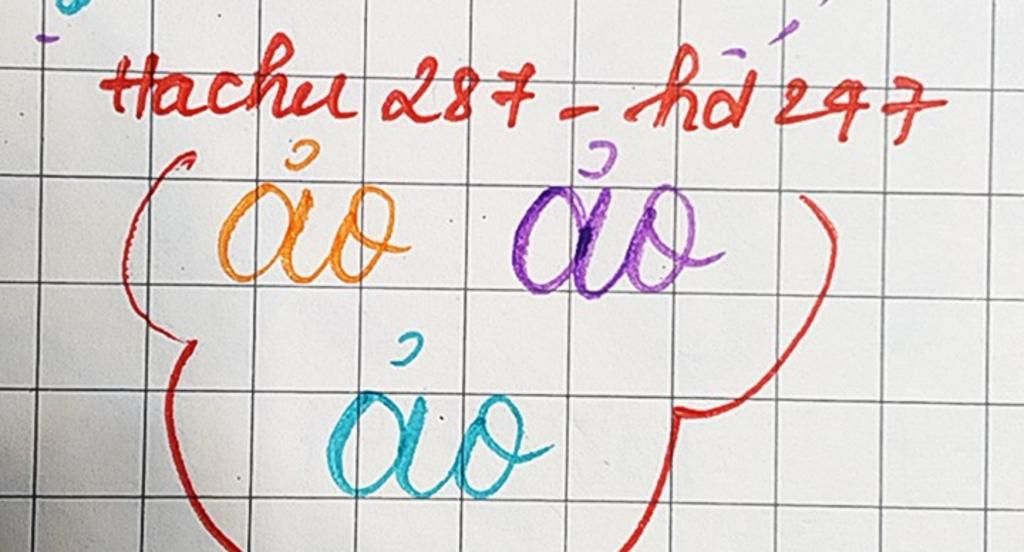 Hachu 287 - hd 247
ảo ảo
ảo